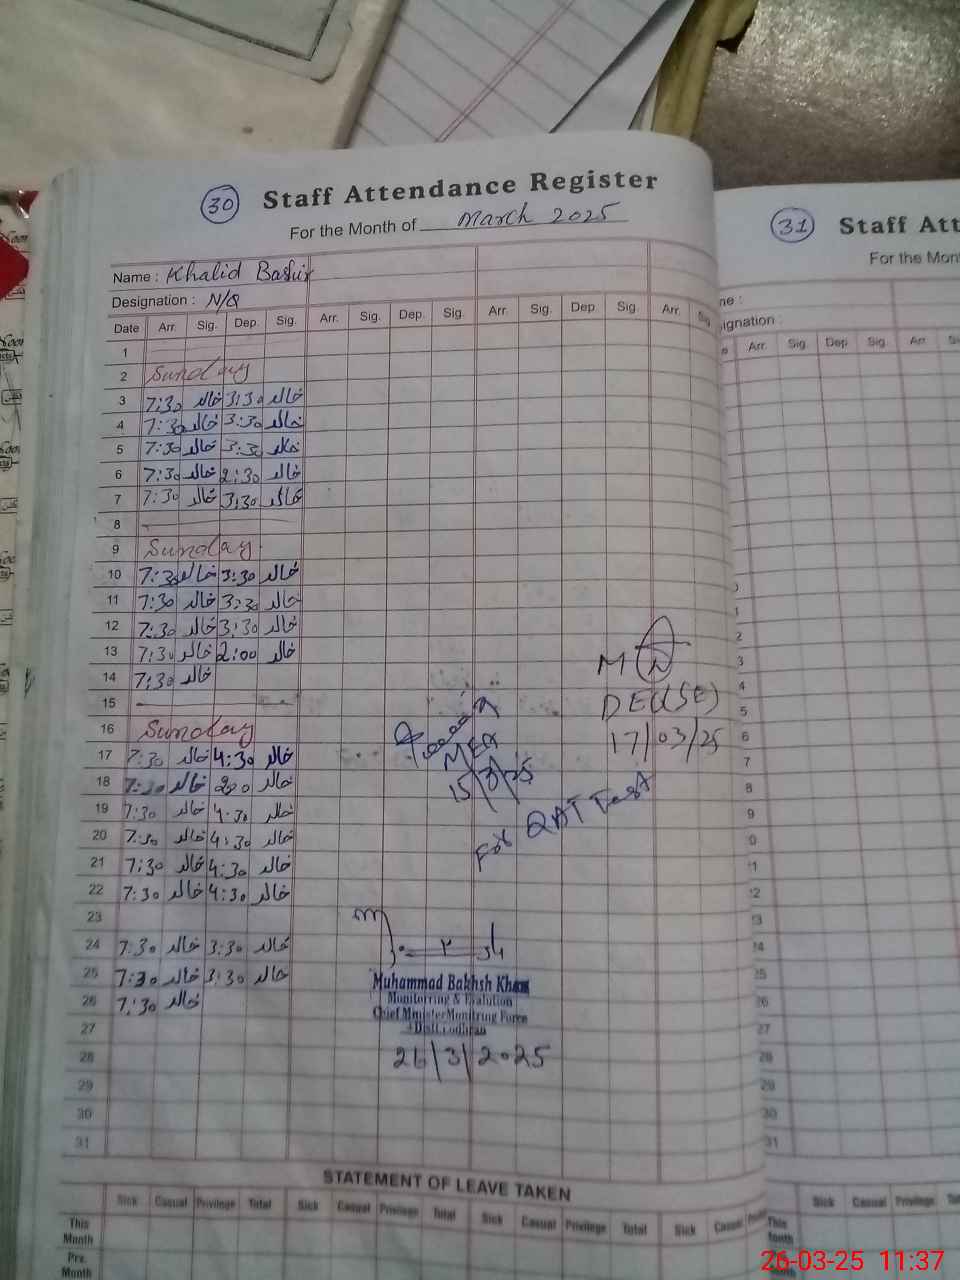 30 Staff Attendance Register
For the Month of March 2025
Name : Khalid Bashir
Designation : N/Q
Date Arr. Sig. Dep. Sig. Arr. Sig. Dep. Sig. Arr. Sig. Dep. Sig. Arr. Sig.
1
2 Sunday
3 7:30 خالد 3:30 خالد
4 7:30 خالد 3:30 خالد
5 7:30 خالد 3:30 خالد
6 7:30 خالد 2:30 خالد
7 7:30 خالد 3:30 خالد
8
9 Sunday
10 7:30 خالد 3:30 خالد
11 7:30 خالد 3:30 خالد
12 7:30 خالد 3:30 خالد
13 7:30 خالد 2:00 خالد
14 7:30 خالد
15
16 Sunday
17 7:30 خالد 4:30 خالد
18 7:30 خالد 200 خالد
19 7:30 خالد 4:30 خالد
20 7:30 خالد 4:30 خالد
21 7:30 خالد 4:30 خالد
22 7:30 خالد 4:30 خالد
23
24 7:30 خالد 3:30 خالد
25 7:30 خالد 3:30 خالد
26 7:30 خالد
27
28
29
30
31
MEA
15/3/25
For QAT Test
DEO(SE)
17/03/25
Muhammad Bakhsh Khan
Monitorring & Evalution
Chief MinisterMonitring Force
Distt Lodhran
26/3/2025
STATEMENT OF LEAVE TAKEN
Sick Casual Privilege Total Sick Casual Privilege Total Sick Casual Privilege Total Sick Casual
This Month
Prv. Month
31 Staff Att
For the Mon
me :
signation :
Arr. Sig. Dep. Sig. Arr.
Sick Casual Privilege
This
26-03-25 11:37